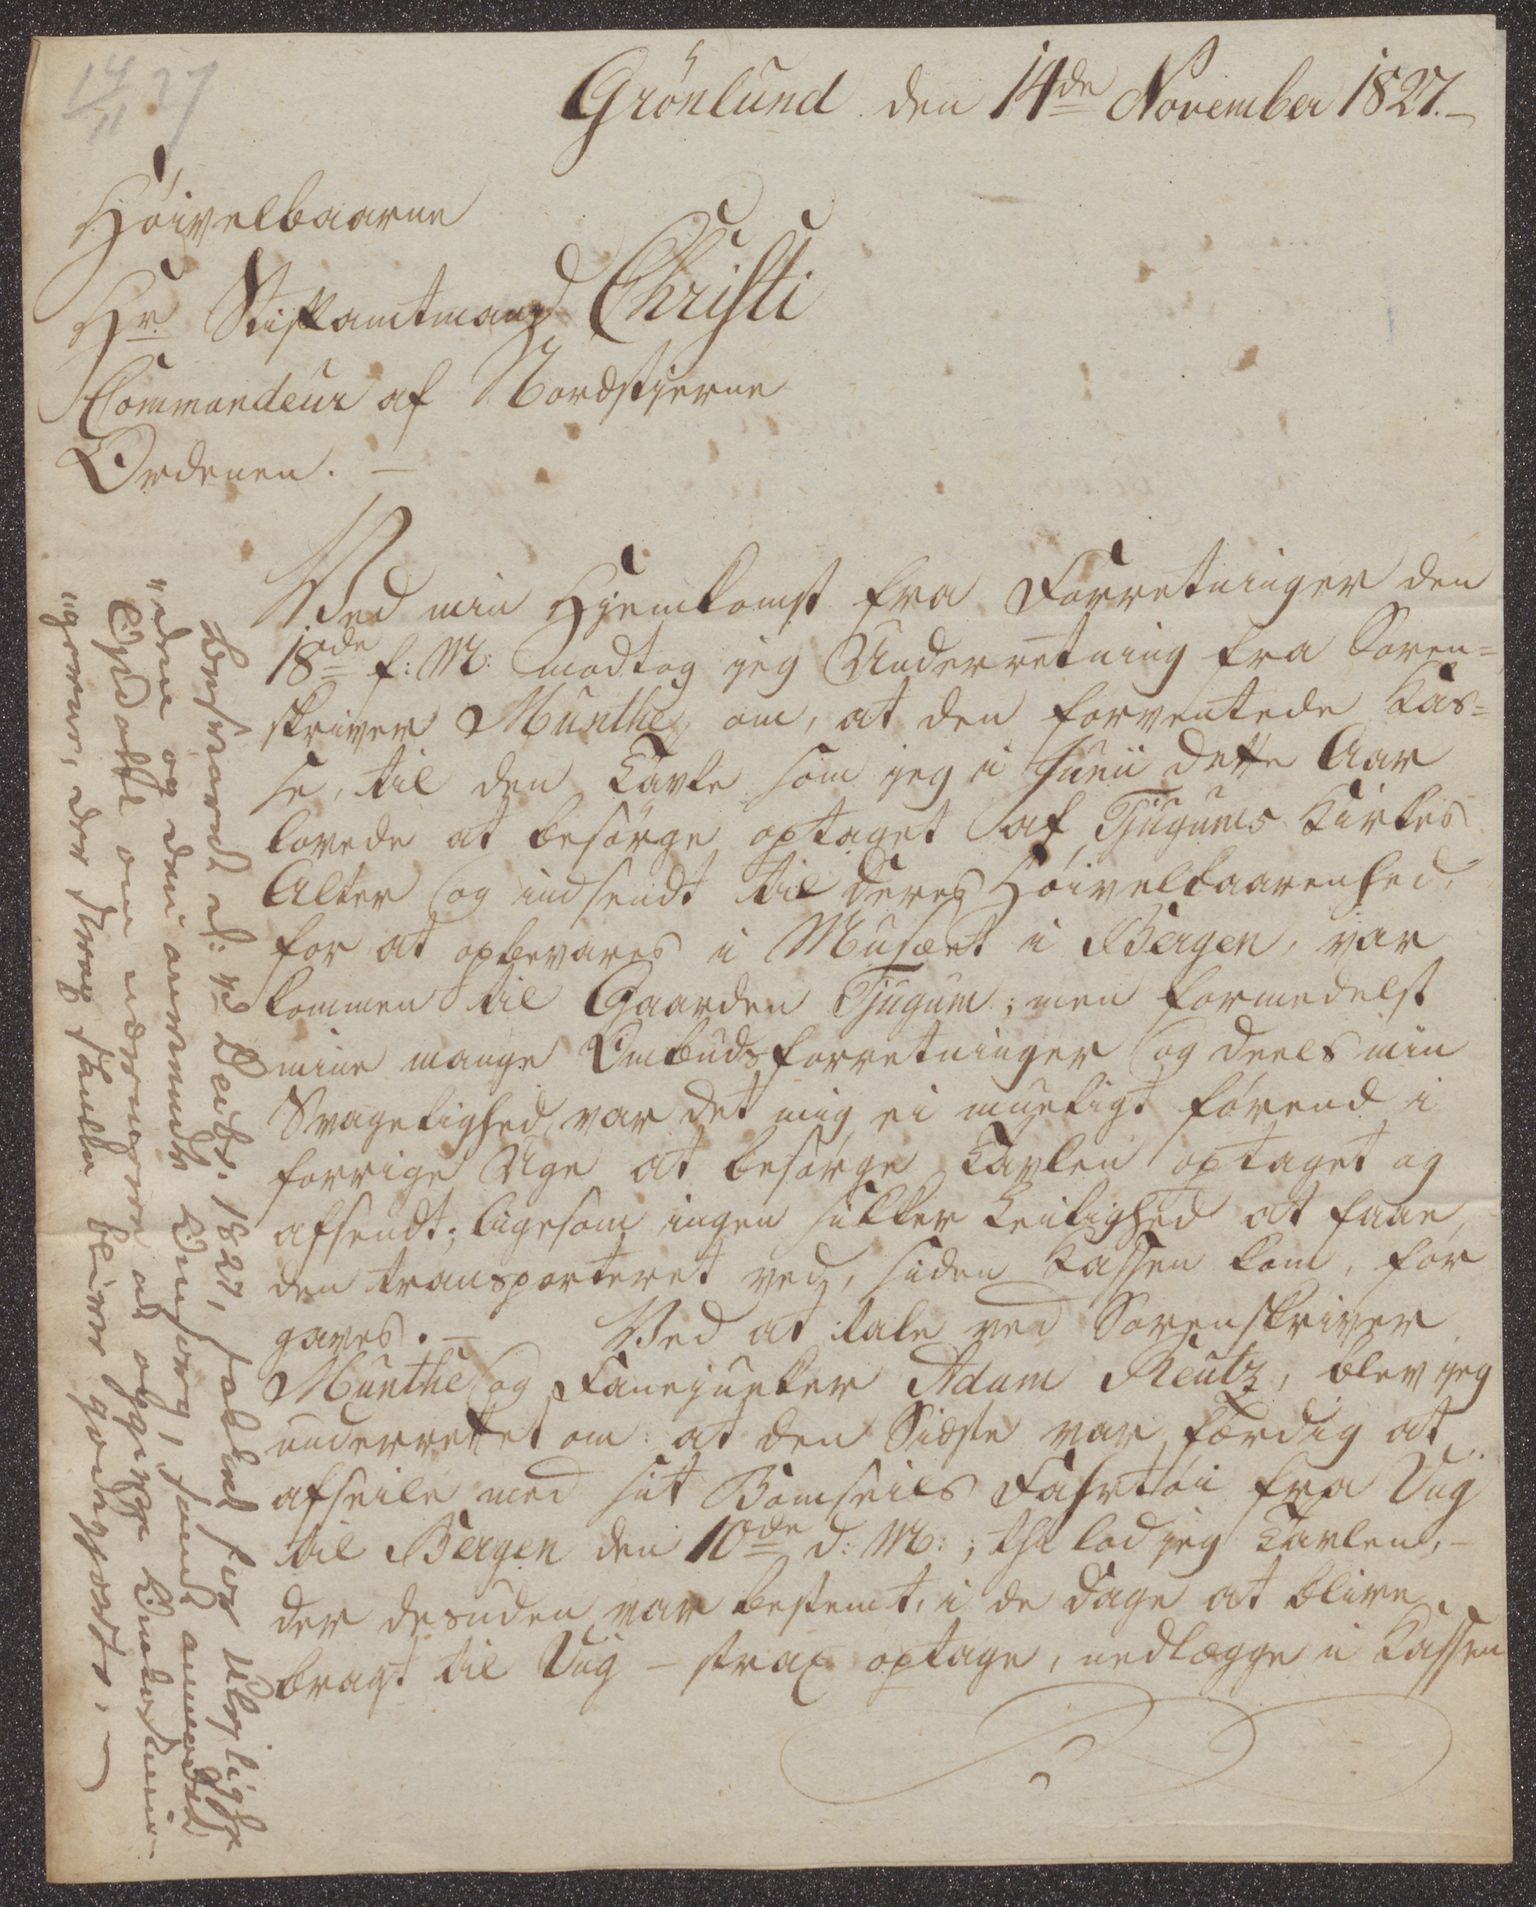 14/11 27
Grönlund den 14de November 1827.
Höivelbaarne
Hr. Stiftamtmand Christi
Commandeur af Nordstjerne
Ordenen. —
Ved min Hjemkomst fra Forretninger den
18de f: M: modtog jeg Underretning fra Soren=
skriver Munthe, om, at den forventede Kas=
se, til den Tavle som jeg i Junii dette Aar
lovede at besörge optaget af Tjugums Kirkes
Alter og indsendt til Deres Höivelbaarenhed,
for at opbevares i Musæet i Bergen, var
kommen til Gaarden Tjugum; men formedelst
mine mange Ombudsforretninger og deels min
Svagelighed, var det mig ei mueligt förend i
forrige Uge at besörge Tavlen optaget og
afsendt; ligesom ingen sikker Leilighed at faae
den transporteret ved, siden Kassen kom, för
gaves. — Ved at tale ved Sorenskriver
Munthe og Fanejunker Adam Reutz, blev jeg
underrettet om: at den Sidste var færdig at
afseile med sit Bömseils Fahrtöi fra Viig
til Bergen den 10de d: M:; thi lod jeg Tavlen, —
der desuden var bestemt, i de Dage at blive
bragt til Viig — strax optage, nedlægge i Kassen
Besvaret d: Decbr. 1827, takket for Uleilig-
"heden og den anvendte Omsorg, samt anmodet
Opsatte om nærmere at opgive Omkostnin-
"gerne, der strax skulle blive godtgjorte. —